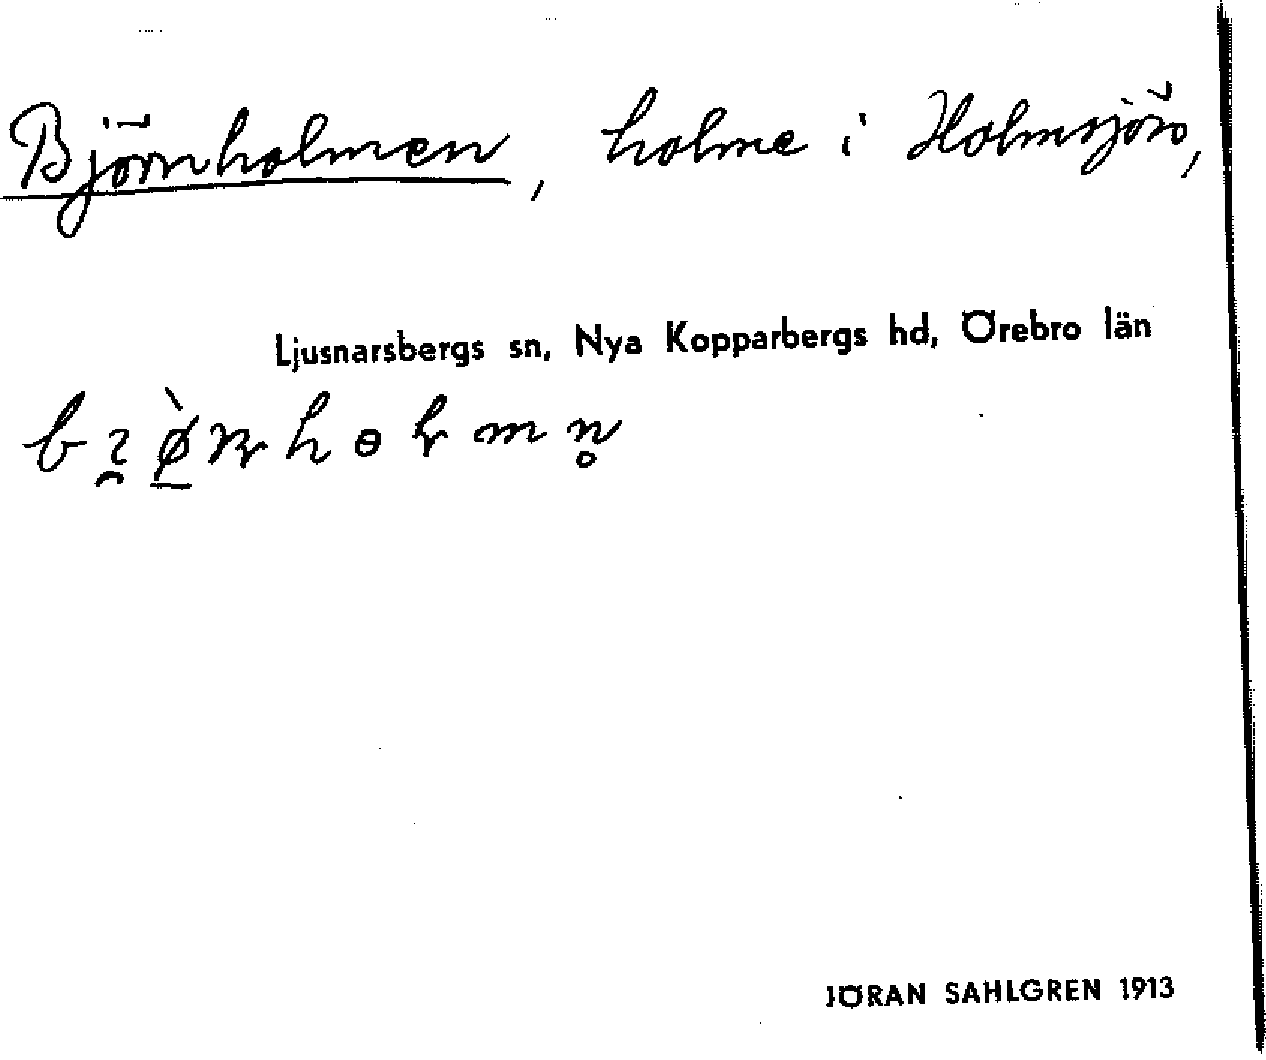 Björnholmen, holme i Holmsjön,
Ljusnarsbergs sn, Nya Kopparbergs hd, Örebro län
JÖRAN SAHLGREN 1913